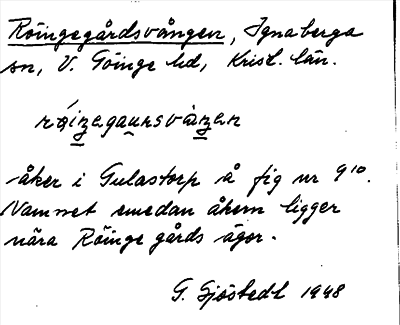 Röingegårdsvången, Ignaberga
sn, V. Göinge hd, Krist. län.
råizegaunsvåzen
åker i Gulastorp å fig nr 9¹⁰.
Namnet emedan åkern ligger
nära Röinge gårds ägor.
G. Sjöstedt 1948